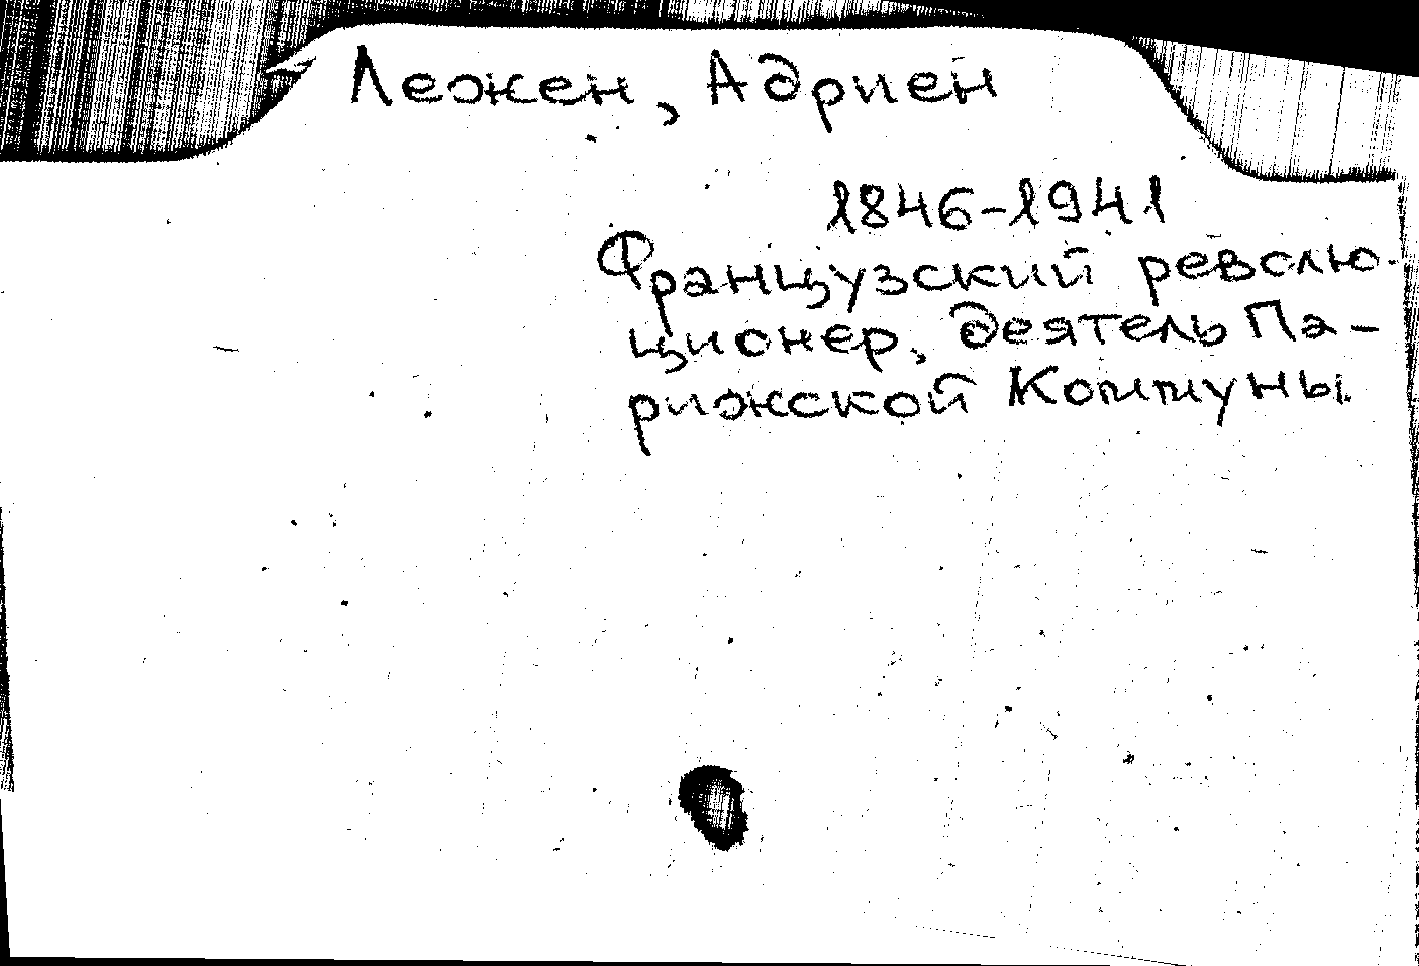 Лежен, Адриен
1846-1941
Французский револю-
ционер, деятель Па-
рижской Коммуны.